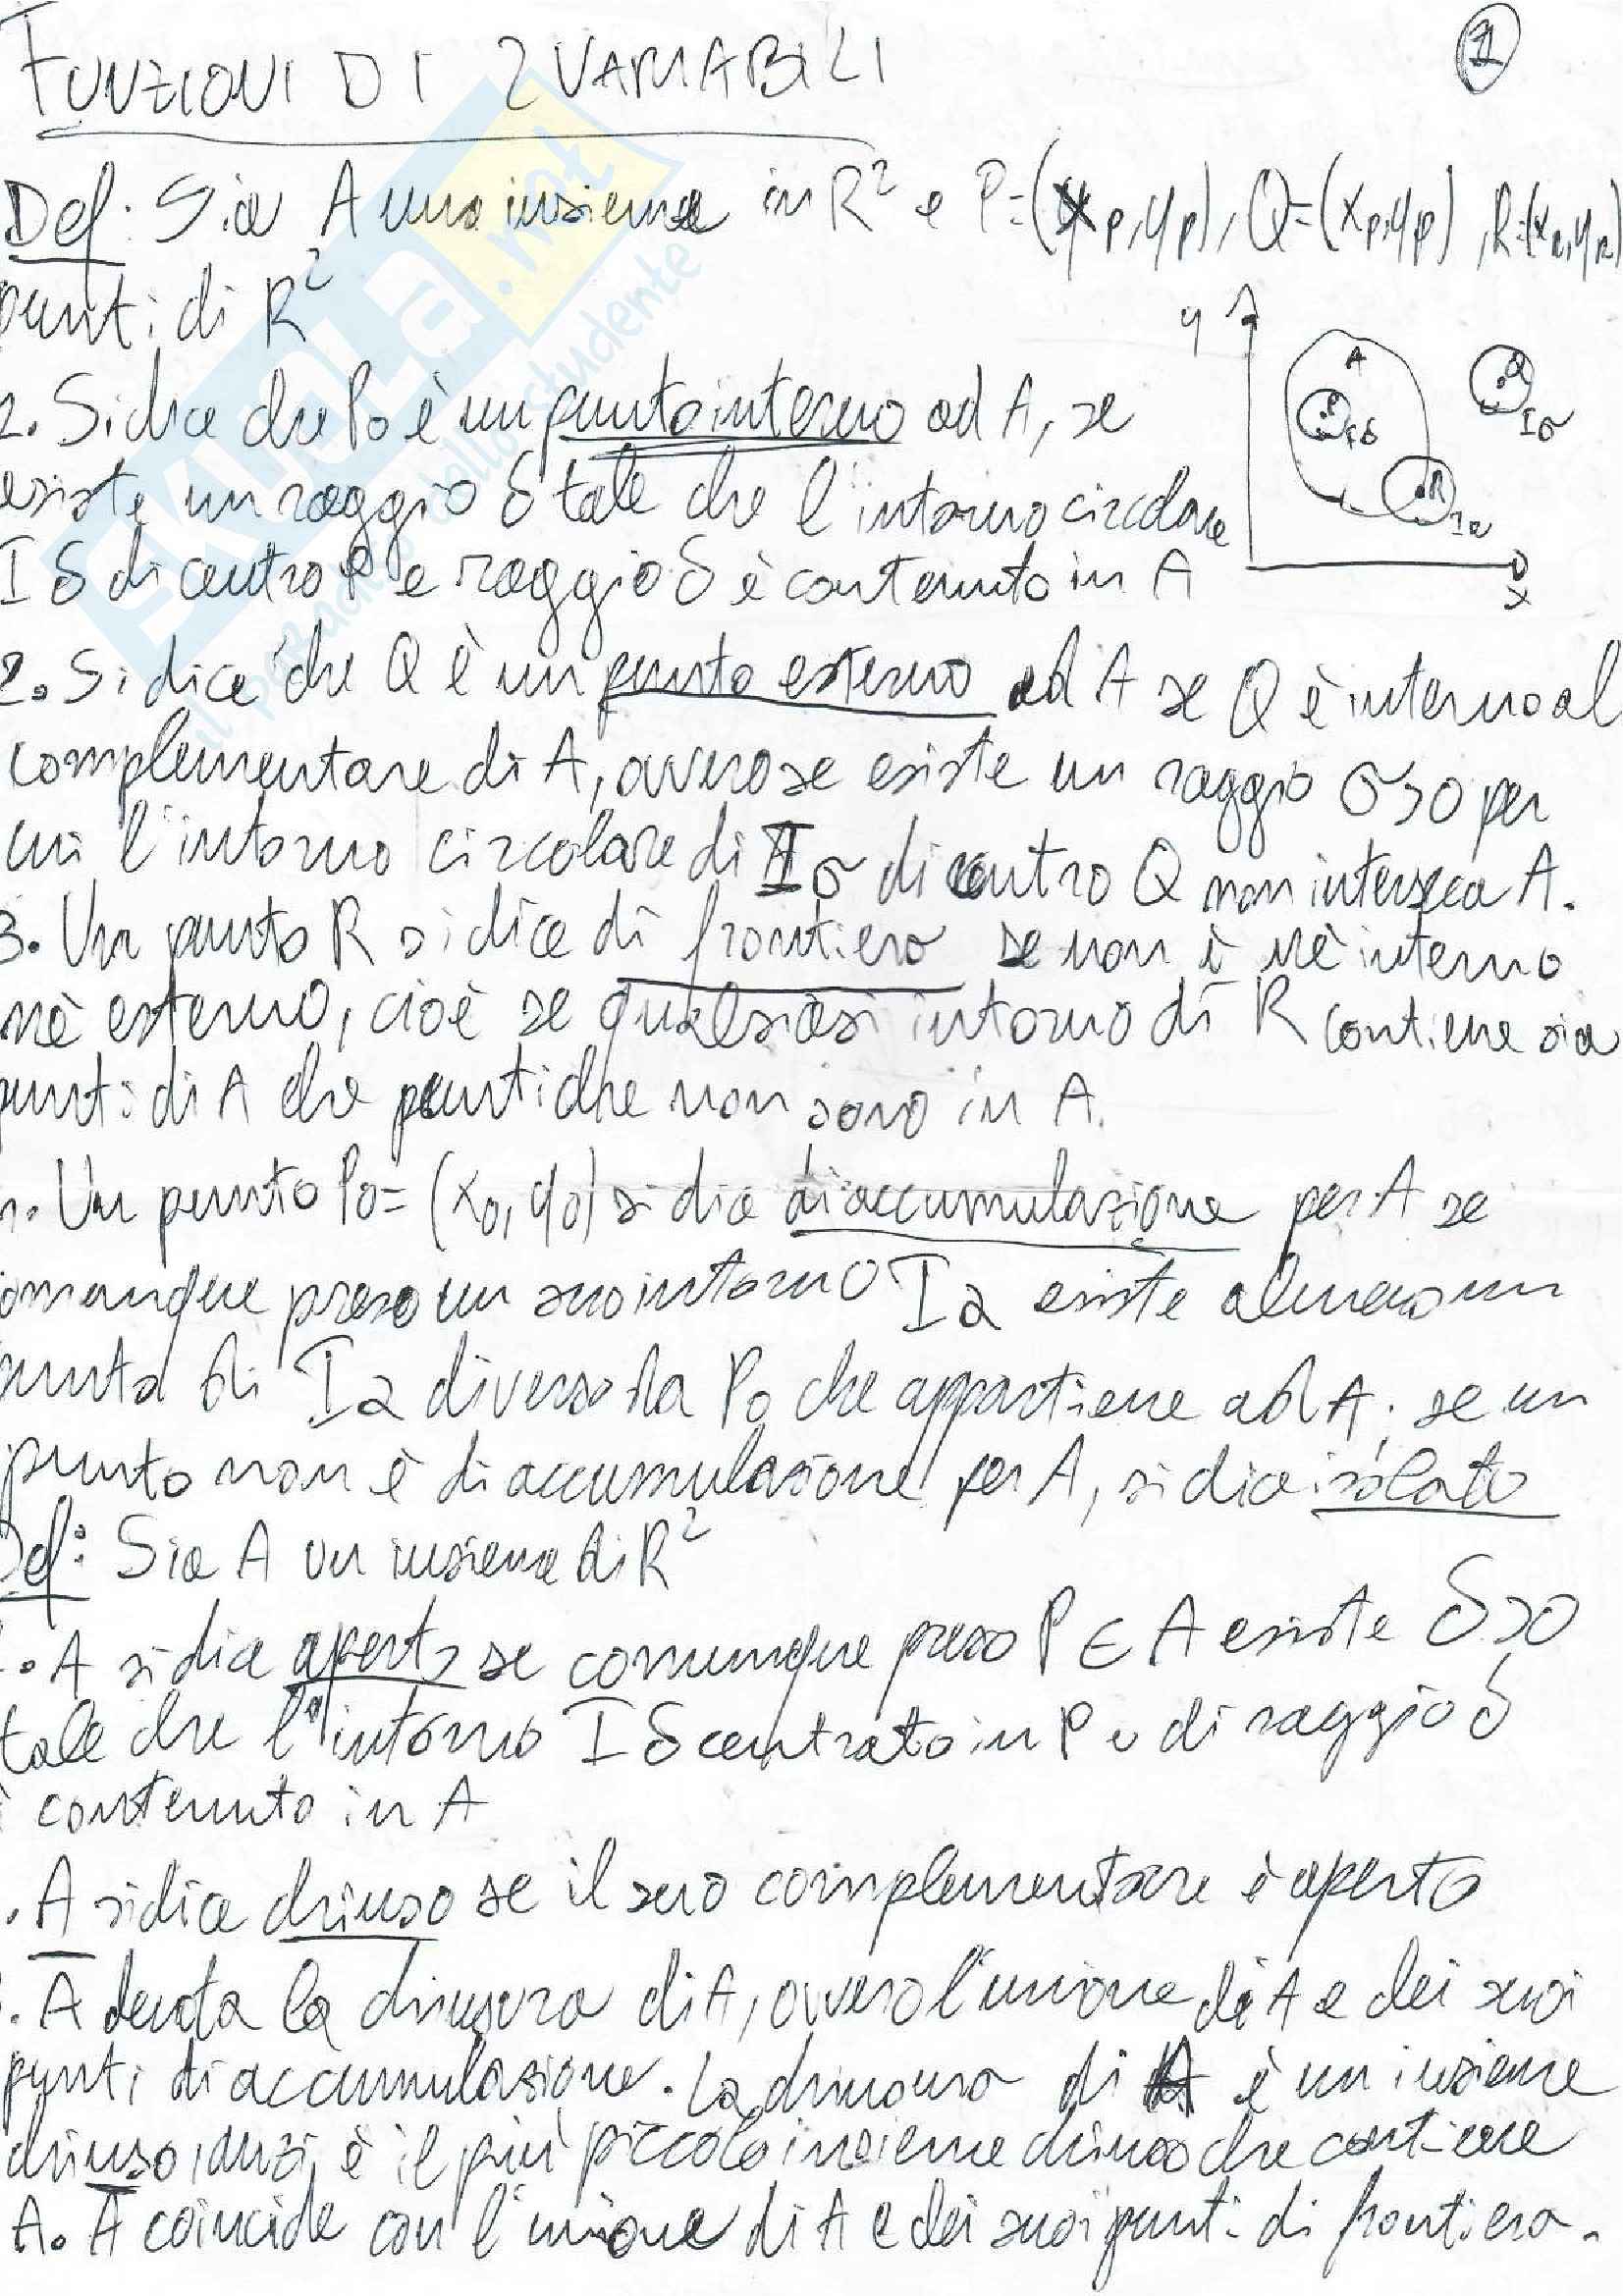 FUNZIONI DI 2 VARIABILI
1
Def: Sia A uno insieme in R² e P=(xp,yp), Q=(xp,yp), R=(xR,yR)
punti di R²
1. Si dice che P0 è un punto interno ad A, se
esiste un raggio δ tale che l'intorno circolare
Iδ di centro P e raggio δ è contenuto in A
y
A
P
Iδ
Q
Iσ
R
x
2. Si dice che Q è un punto esterno ad A se Q è interno al
complementare di A, ovvero se esiste un raggio σ>0 per
cui l'intorno circolare di Iσ di centro Q non interseca A.
3. Un punto R si dice di frontiera se non è nè interno
nè esterno, cioè se qualsiasi intorno di R contiene sia
punti di A che punti che non sono in A.
. Un punto P0=(x0,y0) si dice di accumulazione per A se
omunque preso un suo intorno I2 esiste almeno un
punto di I2 diverso da P0 che appartiene ad A; se un
punto non è di accumulazione per A, si dice isolato
Def: Sia A un insieme di R²
. A si dice aperto se comunque preso P ∈ A esiste δ>0
tale che l'intorno Iδ centrato in P e di raggio δ
è contenuto in A
. A si dice chiuso se il suo complementare è aperto
. A̅ denota la chiusura di A, ovvero l'unione di A e dei suoi
punti di accumulazione. La chiusura di A è un insieme
chiuso, anzi, è il più piccolo insieme chiuso che contiene
A. A̅ coincide con l'unione di A e dei suoi punti di frontiera.
SKUOLA.net
il paradiso dello studente